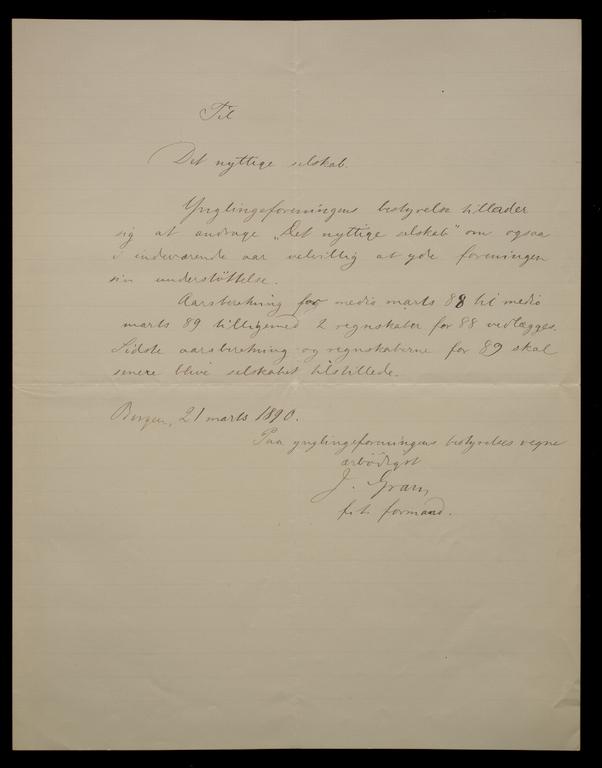 Til
Det nyttige selskab.
Ynglingeforeningens bestyrelse tillader
sig at andrage „Det nyttige selskab" om ogsaa
i indeværende aar velvillig at yde foreningen
sin understøttelse.
Aarsberetning for medio marts 88 til medio
marts 89 tilligemed 2 regnskaber for 88 vedlægges.
Sidste aarsberetning og regnskaberne for 89 skal
senere blive selskabet tilstillede.
Bergen, 21 marts 1890.
Paa ynglingeforeningens bestyrelses vegne
ærbødigst
J. Gram,
f.t. formand.